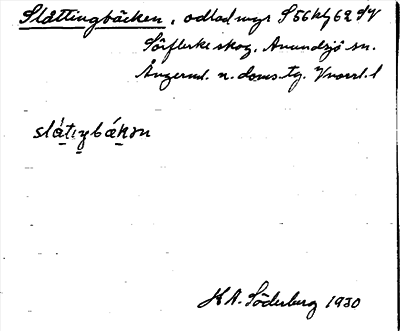 Slåttingbäcken, odlad myr S 56 kbg 62 SV
Sörflärke skog. Anundsjö sn.
Ångerml. n. doms. tg. Vnorrl. l
slátiŋbákən
K A. Söderberg 1930